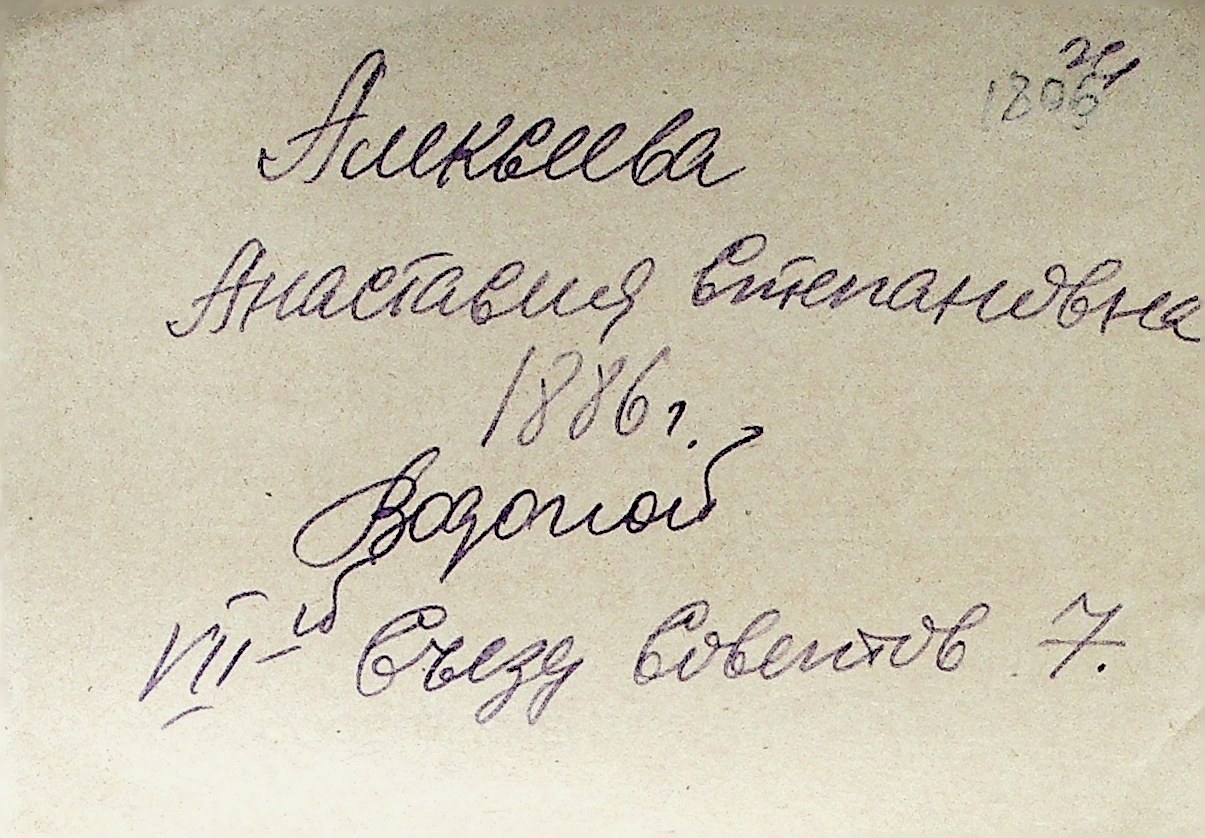 1806
Алексеева
Анастасия Степановна
1886 г.
Водопой
VII-й Съезд Советов 7.